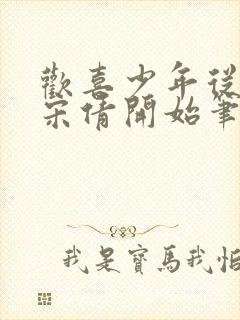 歡喜少年從
宋倩開始筆
我是寶馬我怕